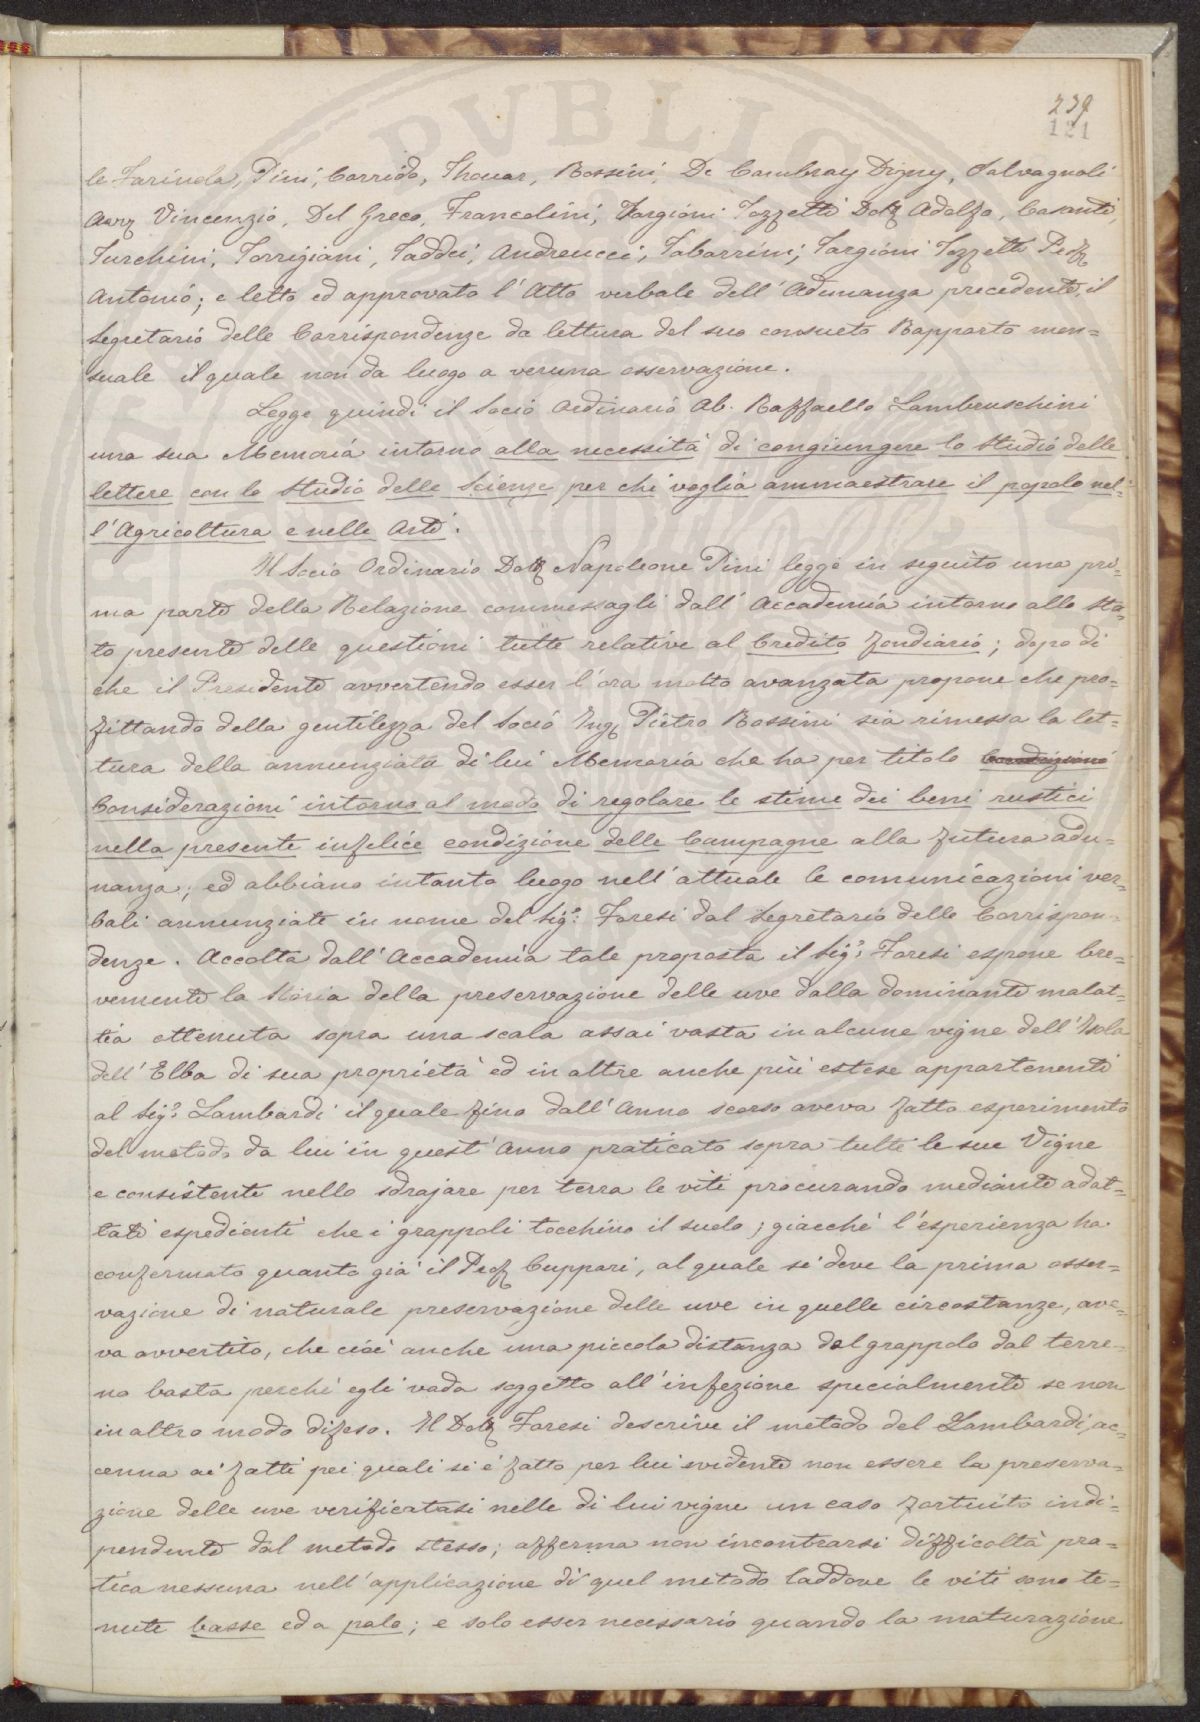 239
121
le Farinola, Pini, Corrido, Thouar, Rossini, De Cambray Digny, Salvagnoli
Avv. Vincenzio, Del Greco, Francolini, Targioni Tozzetti Dott. Adolfo, Casanti,
Turchini, Torrigiani, Taddei, Andreucci, Tabarrini, Targioni Tozzetti Prof.
Antonio; e letto ed approvato l'Atto verbale dell'Adunanza precedente, il
Segretario delle Corrispondenze da lettura del suo consueto Rapporto men=
suale il quale non da luogo a veruna osservazione.
Legge quindi il Socio Ordinario Ab. Raffaello Lambruschini
una sua Memoria intorno alla necessità di congiungere lo studio delle
lettere con lo studio delle Scienze per chi voglia ammaestrare il popolo nel=
l'Agricoltura e nelle Arti.
Il Socio Ordinario Dott. Napoleone Pini legge in seguito una pri=
ma parte della Relazione commessagli dall'Accademia intorno allo sta=
to presente delle questioni tutte relative al Credito fondiario; dopo di
che il Presidente avvertendo esser l'ora molto avanzata propone che pro=
fittando della gentilezza del Socio Ing. Pietro Rossini sia rimessa la let=
tura della annunziata di lui Memoria che ha per titolo
Considerazioni intorno al modo di regolare le stime dei beni rustici
nella presente infelice condizione delle Campagne alla futura adu=
nanza; ed abbiano intanto luogo nell'attuale le comunicazioni ver=
bali annunziate in nome del Sig.r Foresi dal Segretario delle Corrispon=
denze. Accolta dall'Accademia tale proposta il Sig.r Foresi espone bre=
vemente la storia della preservazione delle uve dalla dominante malat=
tia ottenuta sopra una scala assai vasta in alcune vigne dell'Isola
dell'Elba di sua proprietà ed in altre anche più estese appartenenti
al Sig.r Lambardi il quale fino dall'Anno scorso aveva fatto esperimento
del metodo da lui in quest'Anno praticato sopra tutte le sue Vigne
e consistente nello sdrajare per terra le viti procurando mediante adat=
tati espedienti che i grappoli tocchino il suolo; giacchè l'esperienza ha
confermato quanto già il Prof. Cuppari, al quale si deve la prima osser=
vazione di naturale preservazione delle uve in quelle circostanze, ave=
va avvertito, che cioè anche una piccola distanza del grappolo dal terre=
no basta perchè egli vada soggetto all'infezione specialmente se non
in altro modo difeso. Il Dott. Foresi descrive il metodo del Lambardi, ac=
cenna ai fatti pei quali si è fatto per lui evidente non essere la preserva=
zione delle uve verificatasi nelle di lui vigne un caso fortuito indi=
pendente dal metodo stesso; afferma non incontrarsi difficoltà pra=
tica nessuna nell'applicazione di quel metodo laddove le viti sono te=
nute basse ed a palo; e solo esser necessario quando la maturazione